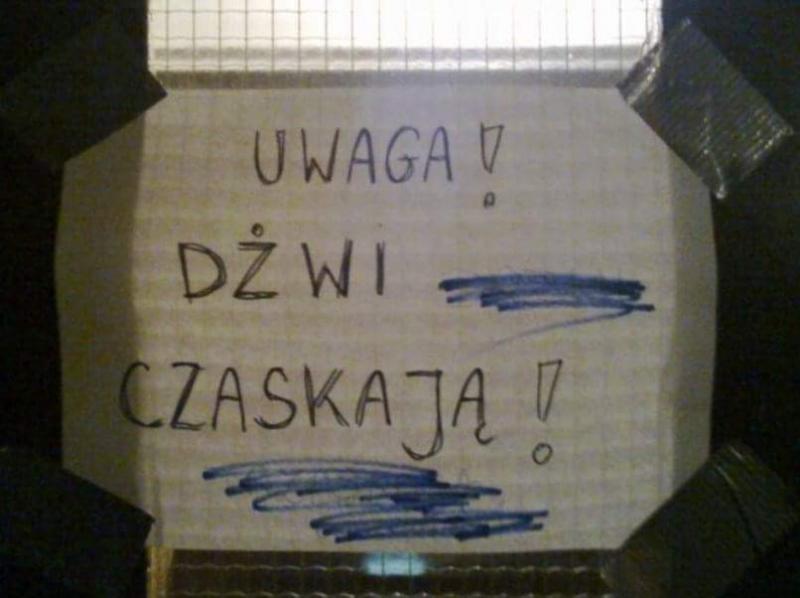 UWAGA!
DŻWI
CZASKAJĄ!